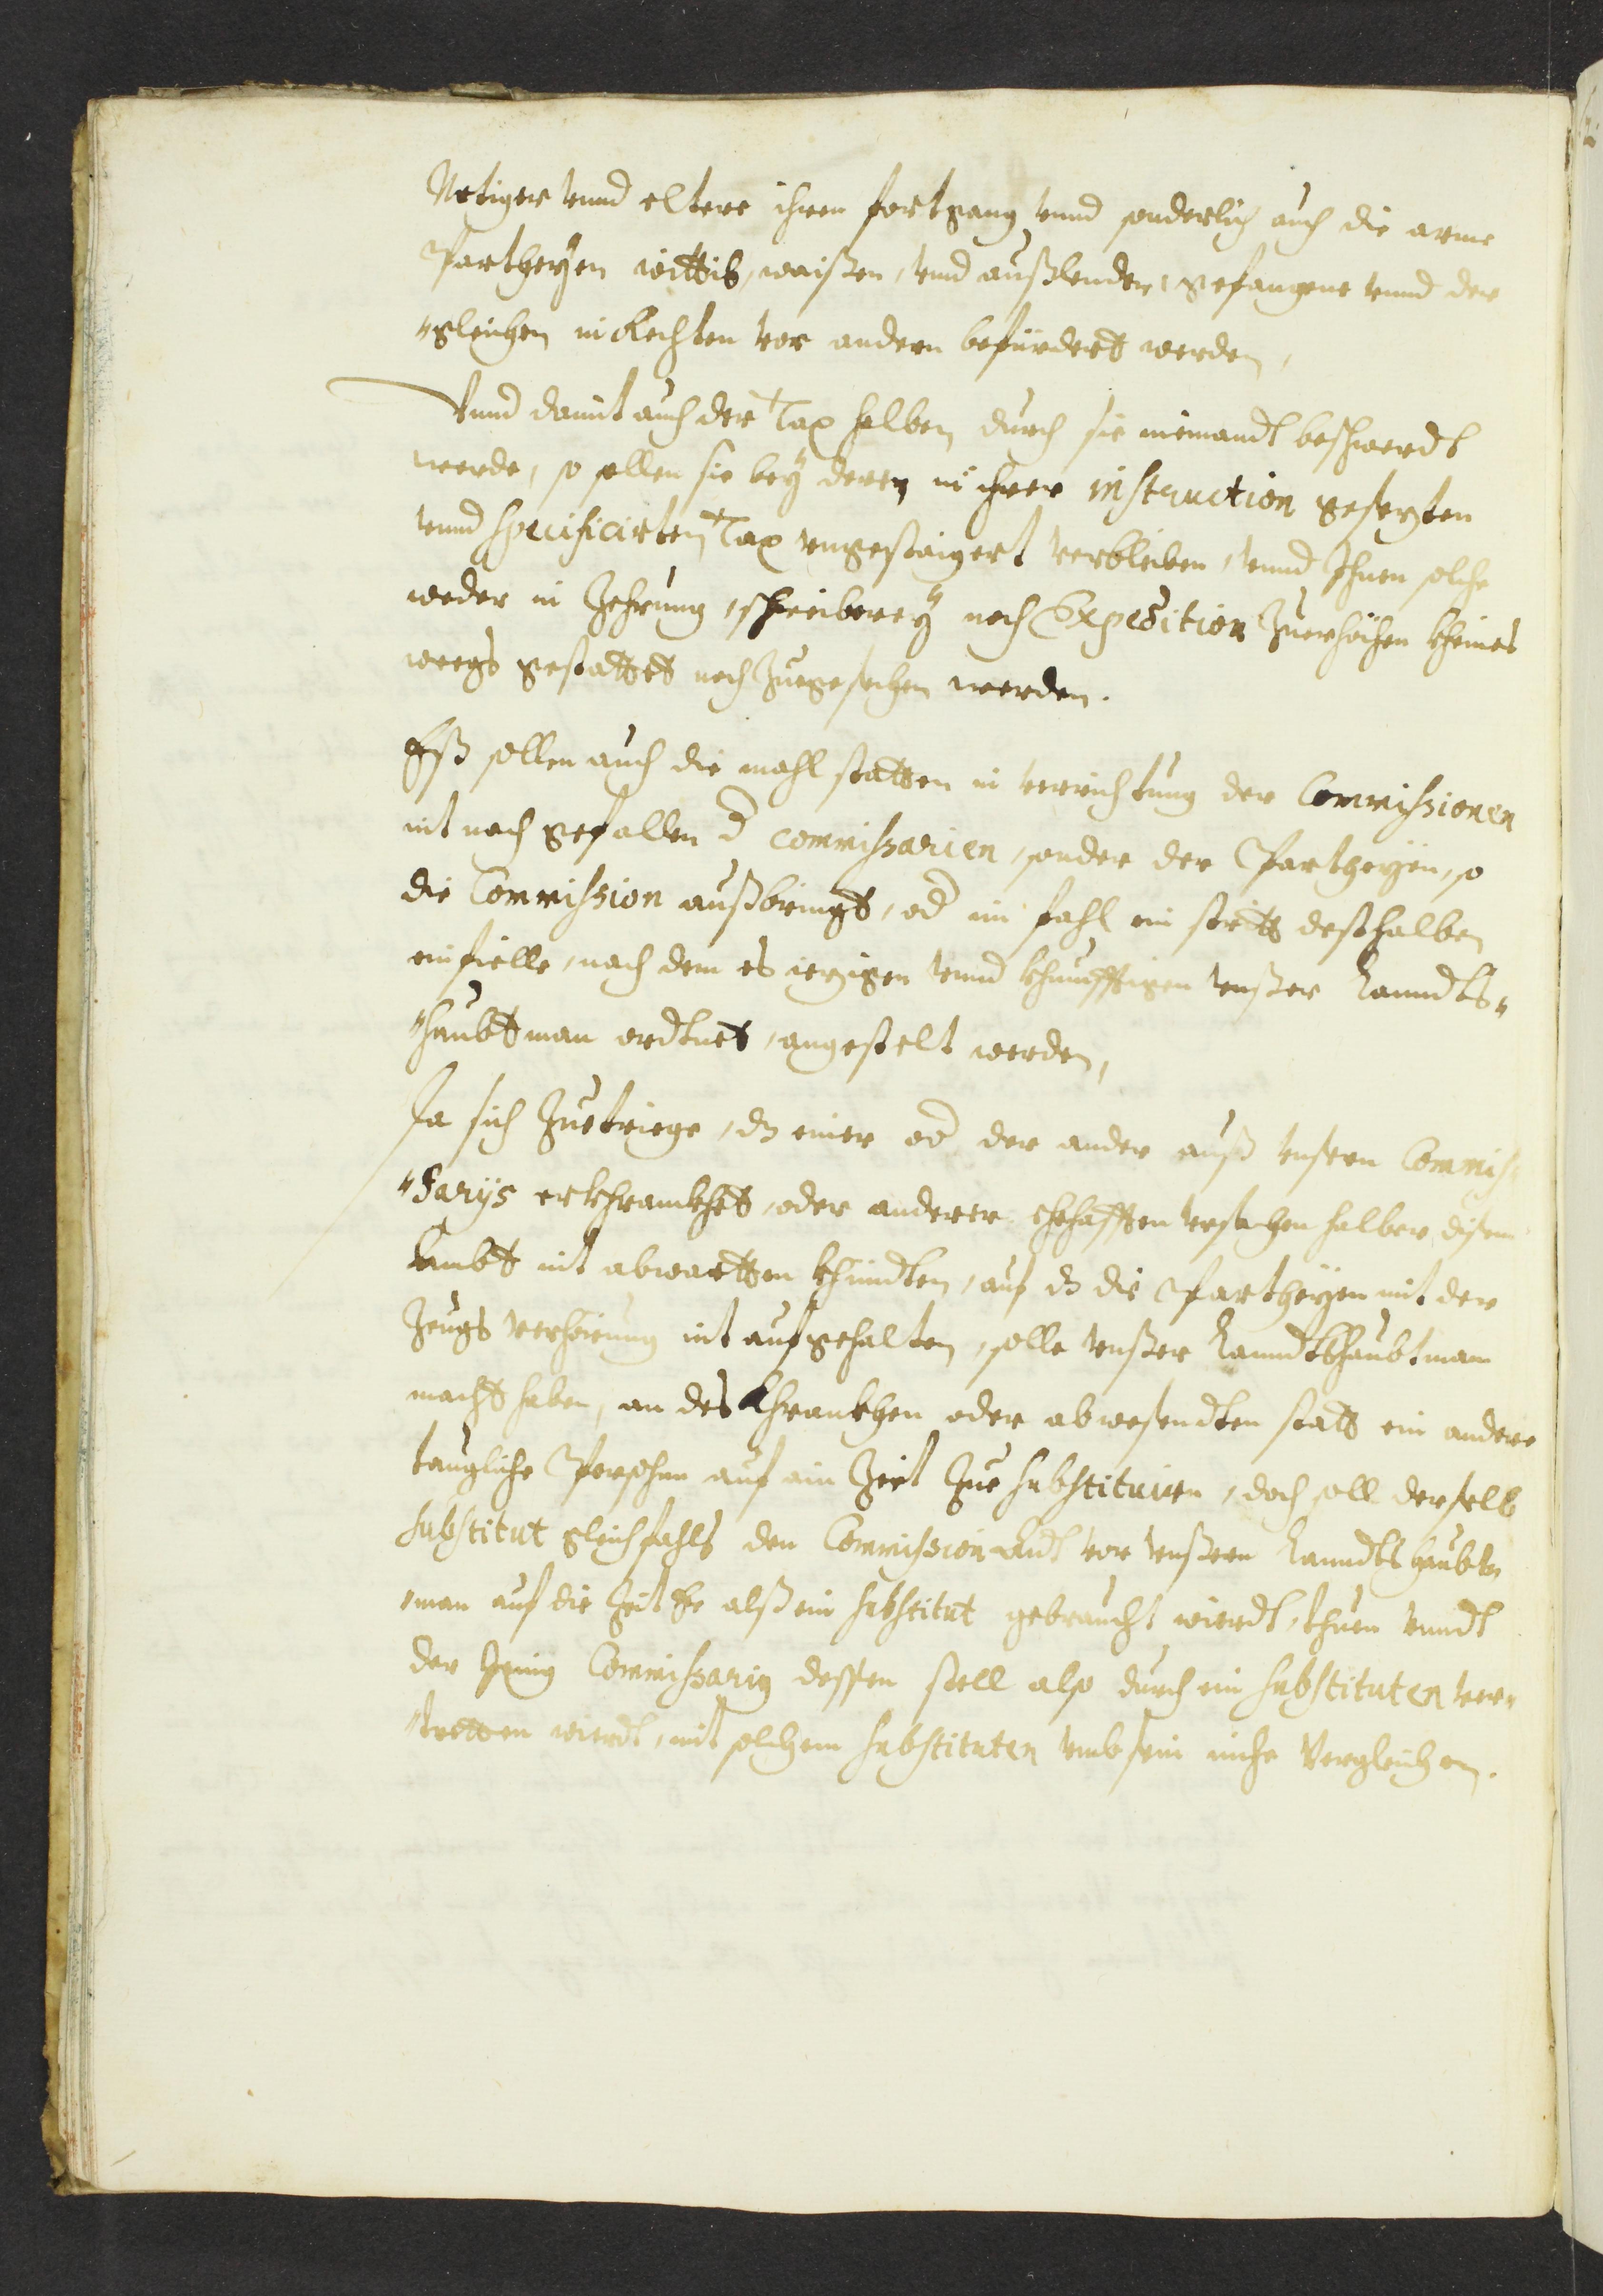 Notiger vnnd eltere ihren fortgang vnnd sonderlich auch die arme
Partheyen wittib, waißen, vnd außlender, gefangene vnnd der
"gleichen in Rechten vor andern befürdert werden,
Vnnd damit auch der Tax halben durch sie niemandt beschwerdt
werde, so sollen sie bey deren in ihrer instruction gesezten
vnnd specificirten Tax vngestaigert verbleiben, vnnd Ihnen solche
weder in Zehrung, schreiberey noch Expedition Zuerhöhen kheines
weegs gestattet noch Zuegesehen werden.
Eß sollen auch die mahl statten in verrichtung der Commissionen
nit nach gefallen d commissarien, sonder der Partheyen, so
die Commission außbringt, od im fahl ein stritt deßhalben
einfielle, nach dem es iezigen vnnd khunfftigen vnßer Lanndts"
"haubtman ordtnet, angestelt werden,
Ja sich Zuetriege, dz einer od der ander auß vnsern Commis"
"sarys erkhrankhet, oder anderer ehehafften vrsachen halber disem
Ambt nit abwartten khündten, auf dz die Partheyen mit der
Zeugs verhörung nit aufgehalten, solle vnßer Lanndtshaubtman
macht haben, an des Khrankhen oder abwesendten statt ein andere
taugliche Persohn auf ain Zeit Zue substituiren, doch soll derselb
substitut gleichfahls den Commission Aidt vor vnßern Lanndtshaubt"
"man auf die Zeit Er alß ein substitut gebraucht wierdt, thuen vnndt
der Jenig Commissarig dessen stell also durch ein substituten ver"
"tretten wierdt, mit solchem substituten vmb sein mühe Vergleichen.